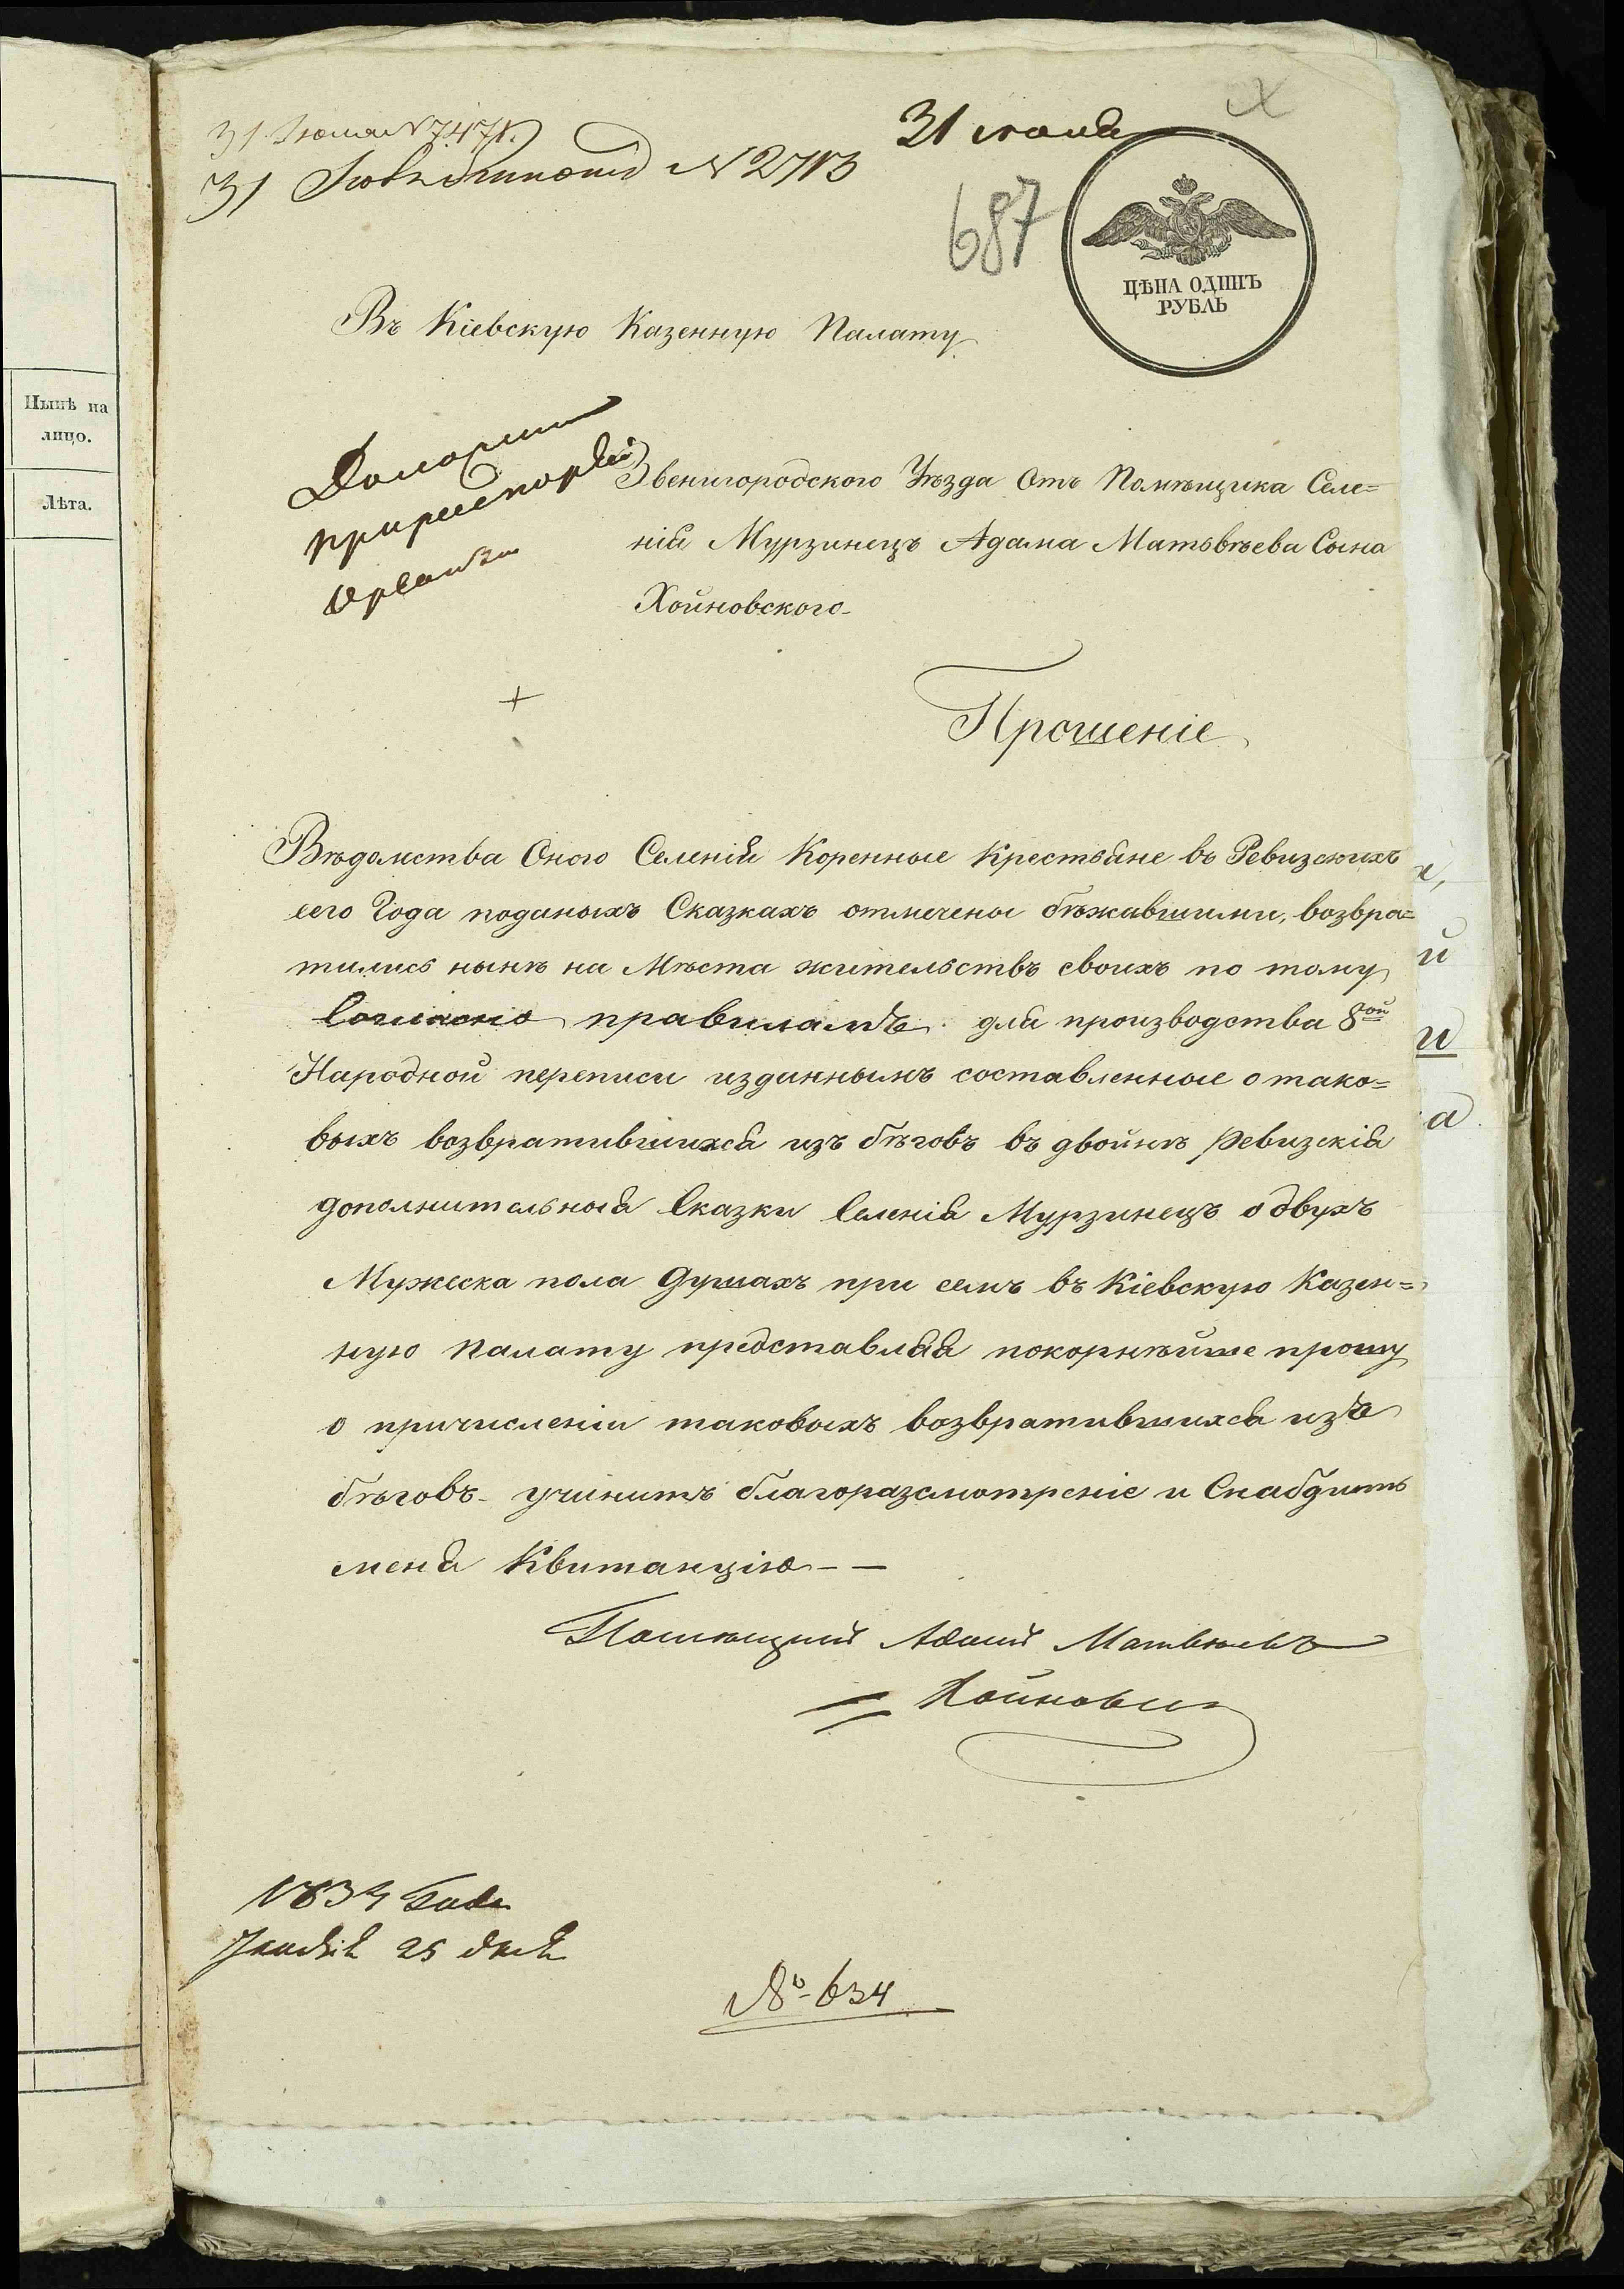 Нынѣ на
лицо.
Лѣта.
31 Июля № 7471.
31 № 2713
31 июля
687
ЦѢНА ОДИНЪ
РУБЛЬ
Въ Кіевскую Казенную Палату
Звенигородского Уѣзда Отъ Помѣщика Селе=
нія Мурзинецъ Адама Матвѣева Сына
Хойновского
Прошеніе
Вѣдомства Оного Селенія Коренные Крестьяне въ Ревизскихъ
сего Года поданыхъ Сказкахъ отмечены бѣжавшими, возвра=
тились нынѣ на Мѣста жительствъ своихъ по тому
Согласно правиламъ для производства 8ой
Народной переписи изданнымъ составленные о тако=
выхъ возвратившихся изъ бѣговъ въ двойнѣ Ревизскія
дополнительныя Сказки Селенія Мурзинецъ о двухъ
Мужеска пола Душахъ при семъ въ Кіевскую Казен=
ную Палату представляя покорнѣйше прошу
о причисленіи таковыхъ возвратившихся изъ
бѣговъ учинить благоразсмотреніе и Снабдить
меня Квитанціею - —
Помѣщикъ Адамъ Матвѣевъ
= Хойновски
1834 Года
25 дня
№ 634